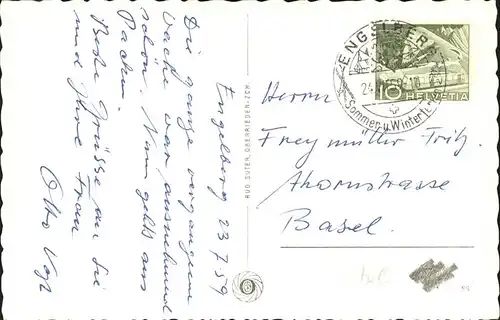 Engelberg 23.7.59
Die ganze vergangene
Woche war ausnehmend
schön. Nun gehts ans
Packen.
Beste Grüsse an Sie
und Ihre Frau
Otto Vogt
RUD. SUTER, OBERRIEDEN-ZCH.
ENGELBERG
24.
Sommer- u. Winter
10
HELVETIA
Herrn
Freymüller Fritz.
Ahornstrasse
Basel.